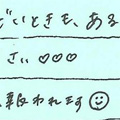 どいときも、ある
さい♡♡♡
報われます☺